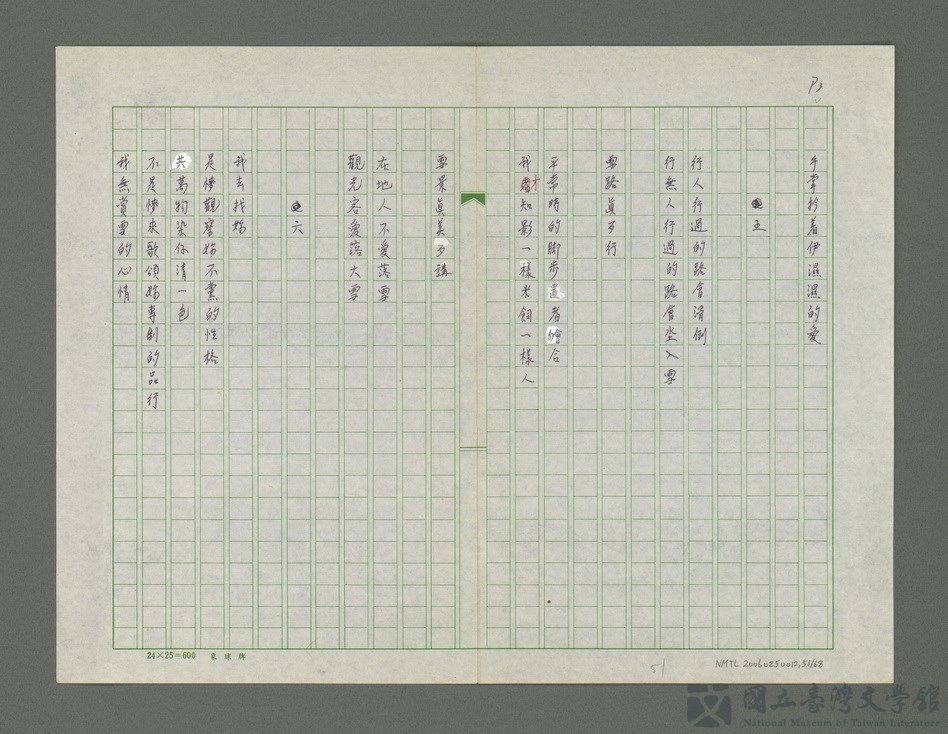 P3
手掌拎着伊濕濕的愛
五
行人行過的路會滑倒
行無人行過的路會坐入雪
雪路眞歹行
平常時的脚步置者繪合
我才知影一樣米飼一樣人
雪景眞美歹講
在地人不愛落雪
觀光客愛落大雪
六
我去找妳
是慘觀察妳不黨的性格
共萬物染伓清一色
不是慘來歌頌妳專制的品行
我無賞雪的心情
24×25=600 象球牌
51
NMTL 20060250012,51/68
國立臺灣文學館
National Museum of Taiwan Literature